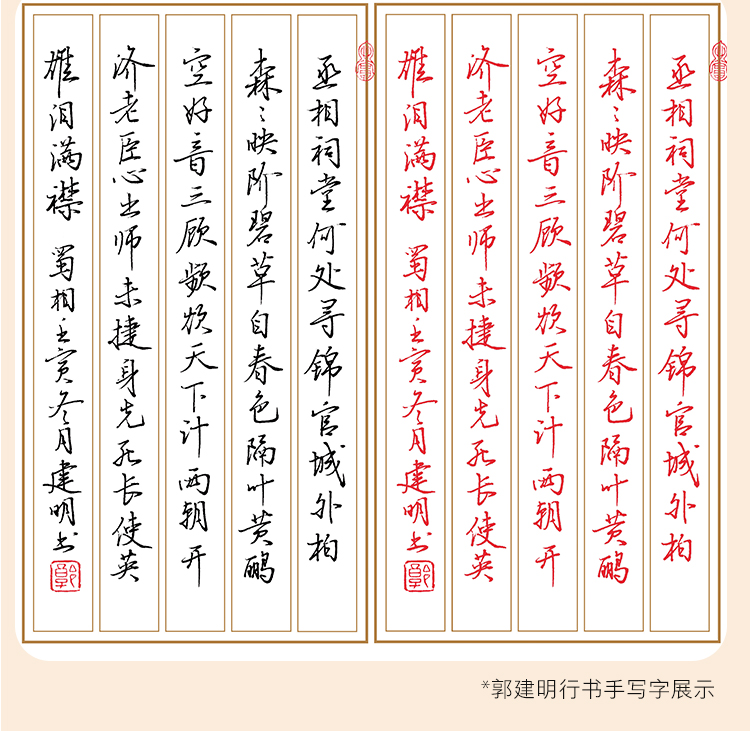 丞相祠堂何处寻锦官城外柏
森々映阶碧草自春色隔叶黄鹂
空好音三顾频烦天下计两朝开
济老臣心出师未捷身先死长使英
雄泪满襟 蜀相壬寅冬月建明书
郭
丞相祠堂何处寻锦官城外柏
森々映阶碧草自春色隔叶黄鹂
空好音三顾频烦天下计两朝开
济老臣心出师未捷身先死长使英
雄泪满襟 蜀相壬寅冬月建明书
郭
*郭建明行书手写字展示